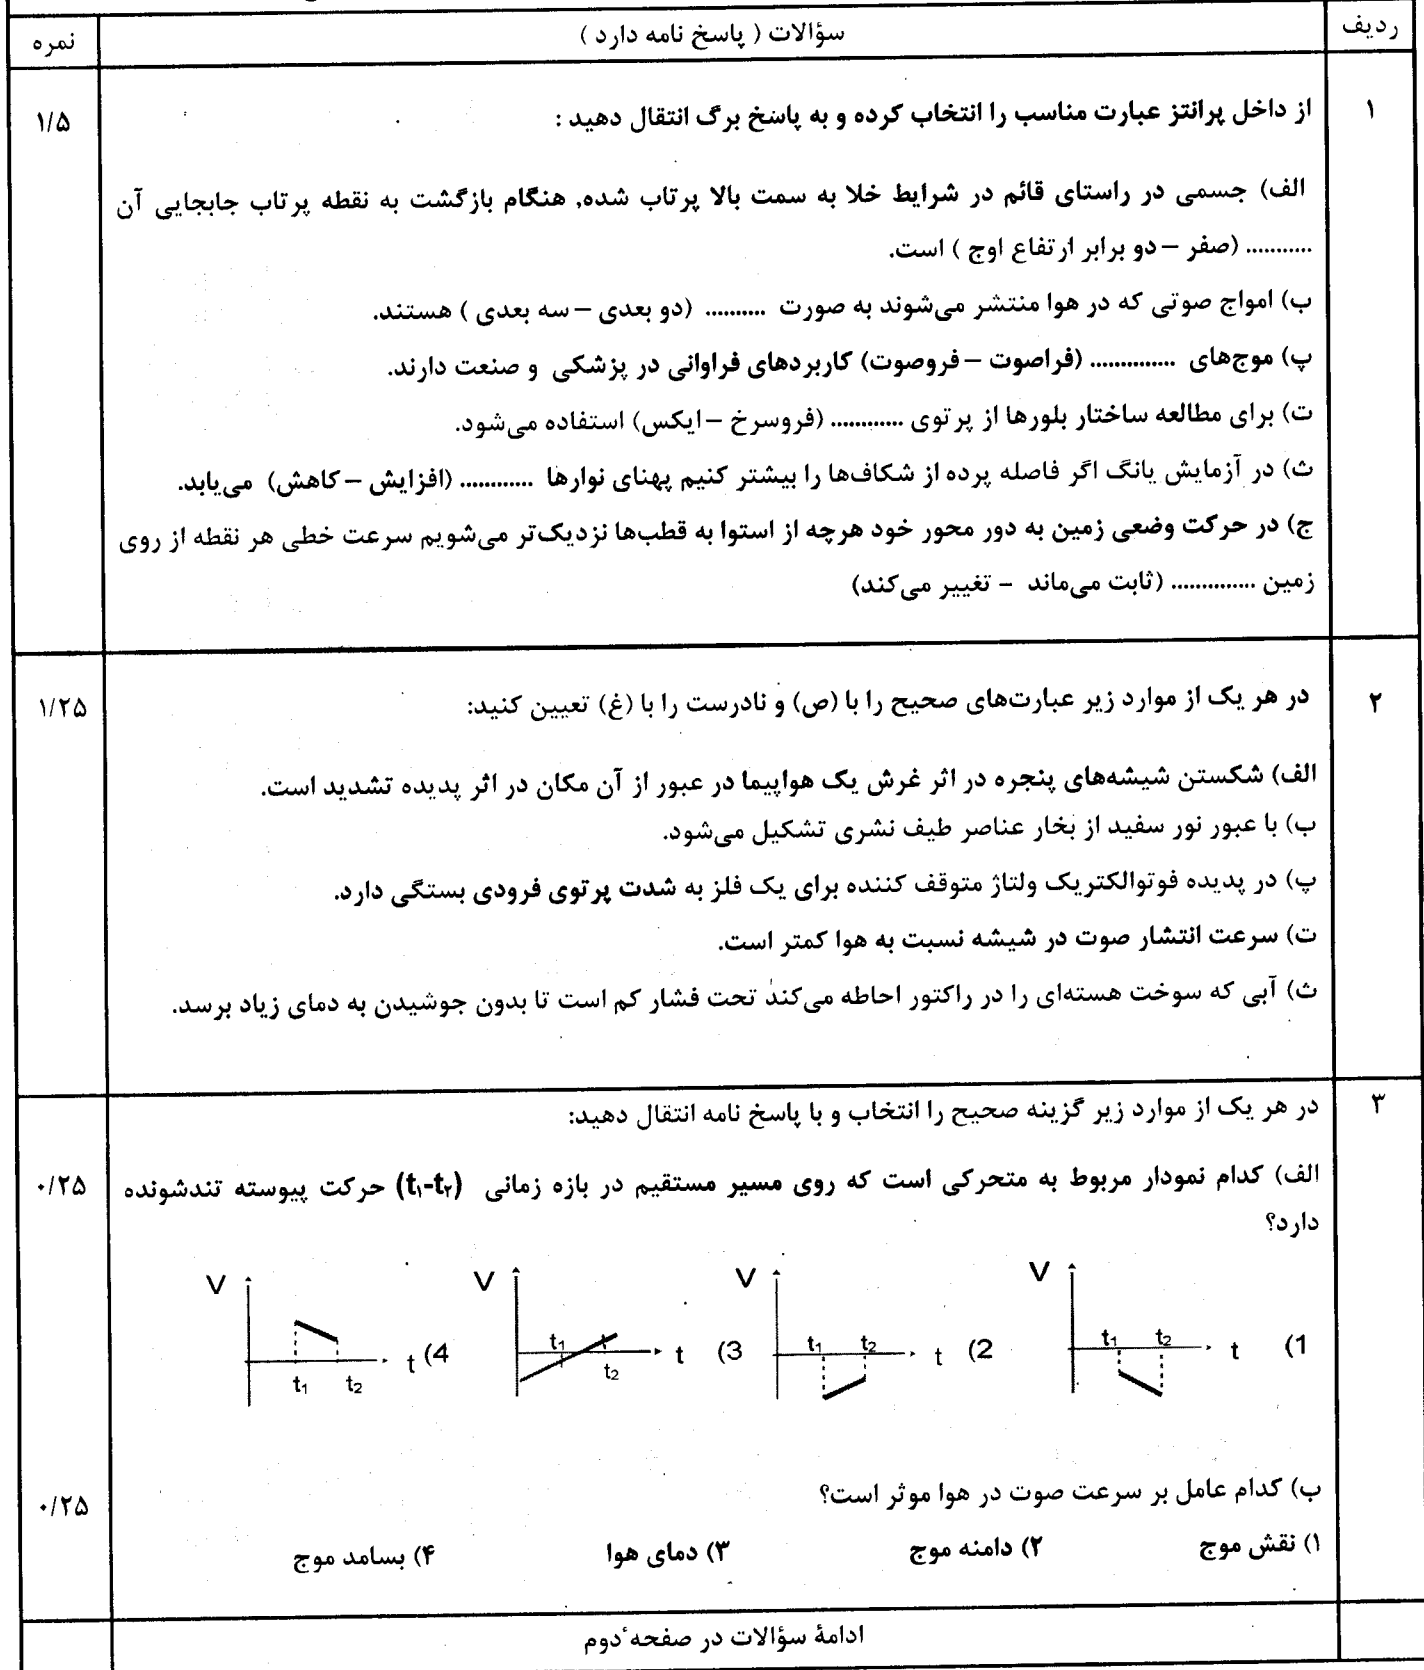 ردیف
سؤالات ( پاسخ نامه دارد )
نمره
۱
از داخل پرانتز عبارت مناسب را انتخاب کرده و به پاسخ برگ انتقال دهید :
۱/۵
الف) جسمی در راستای قائم در شرایط خلا به سمت بالا پرتاب شده, هنگام بازگشت به نقطه پرتاب جابجایی آن
........... (صفر – دو برابر ارتفاع اوج ) است.
ب) امواج صوتی که در هوا منتشر می‌شوند به صورت .......... (دو بعدی – سه بعدی ) هستند.
پ) موج‌های .............. (فراصوت – فروصوت) کاربردهای فراوانی در پزشکی و صنعت دارند.
ت) برای مطالعه ساختار بلورها از پرتوی ............ (فروسرخ – ایکس) استفاده می‌شود.
ث) در آزمایش یانگ اگر فاصله پرده از شکاف‌ها را بیشتر کنیم پهنای نوارها ............ (افزایش – کاهش) می‌یابد.
ج) در حرکت وضعی زمین به دور محور خود هرچه از استوا به قطب‌ها نزدیک‌تر می‌شویم سرعت خطی هر نقطه از روی
زمین .............. (ثابت می‌ماند - تغییر می‌کند)
۲
در هر یک از موارد زیر عبارت‌های صحیح را با (ص) و نادرست را با (غ) تعیین کنید:
۱/۲۵
الف) شکستن شیشه‌های پنجره در اثر غرش یک هواپیما در عبور از آن مکان در اثر پدیده تشدید است.
ب) با عبور نور سفید از بخار عناصر طیف نشری تشکیل می‌شود.
پ) در پدیده فوتوالکتریک ولتاژ متوقف کننده برای یک فلز به شدت پرتوی فرودی بستگی دارد.
ت) سرعت انتشار صوت در شیشه نسبت به هوا کمتر است.
ث) آبی که سوخت هسته‌ای را در راکتور احاطه می‌کند تحت فشار کم است تا بدون جوشیدن به دمای زیاد برسد.
۳
در هر یک از موارد زیر گزینه صحیح را انتخاب و با پاسخ نامه انتقال دهید:
الف) کدام نمودار مربوط به متحرکی است که روی مسیر مستقیم در بازه زمانی (t₁-t₂) حرکت پیوسته تندشونده
۰/۲۵
دارد؟
(1 V t₁ t₂ t
(2 V t₁ t₂ t
(3 V t₁ t₂ t
(4 V t₁ t₂ t
ب) کدام عامل بر سرعت صوت در هوا موثر است؟
۰/۲۵
۱) نقش موج ۲) دامنه موج ۳) دمای هوا ۴) بسامد موج
ادامهٔ سؤالات در صفحه ٔدوم